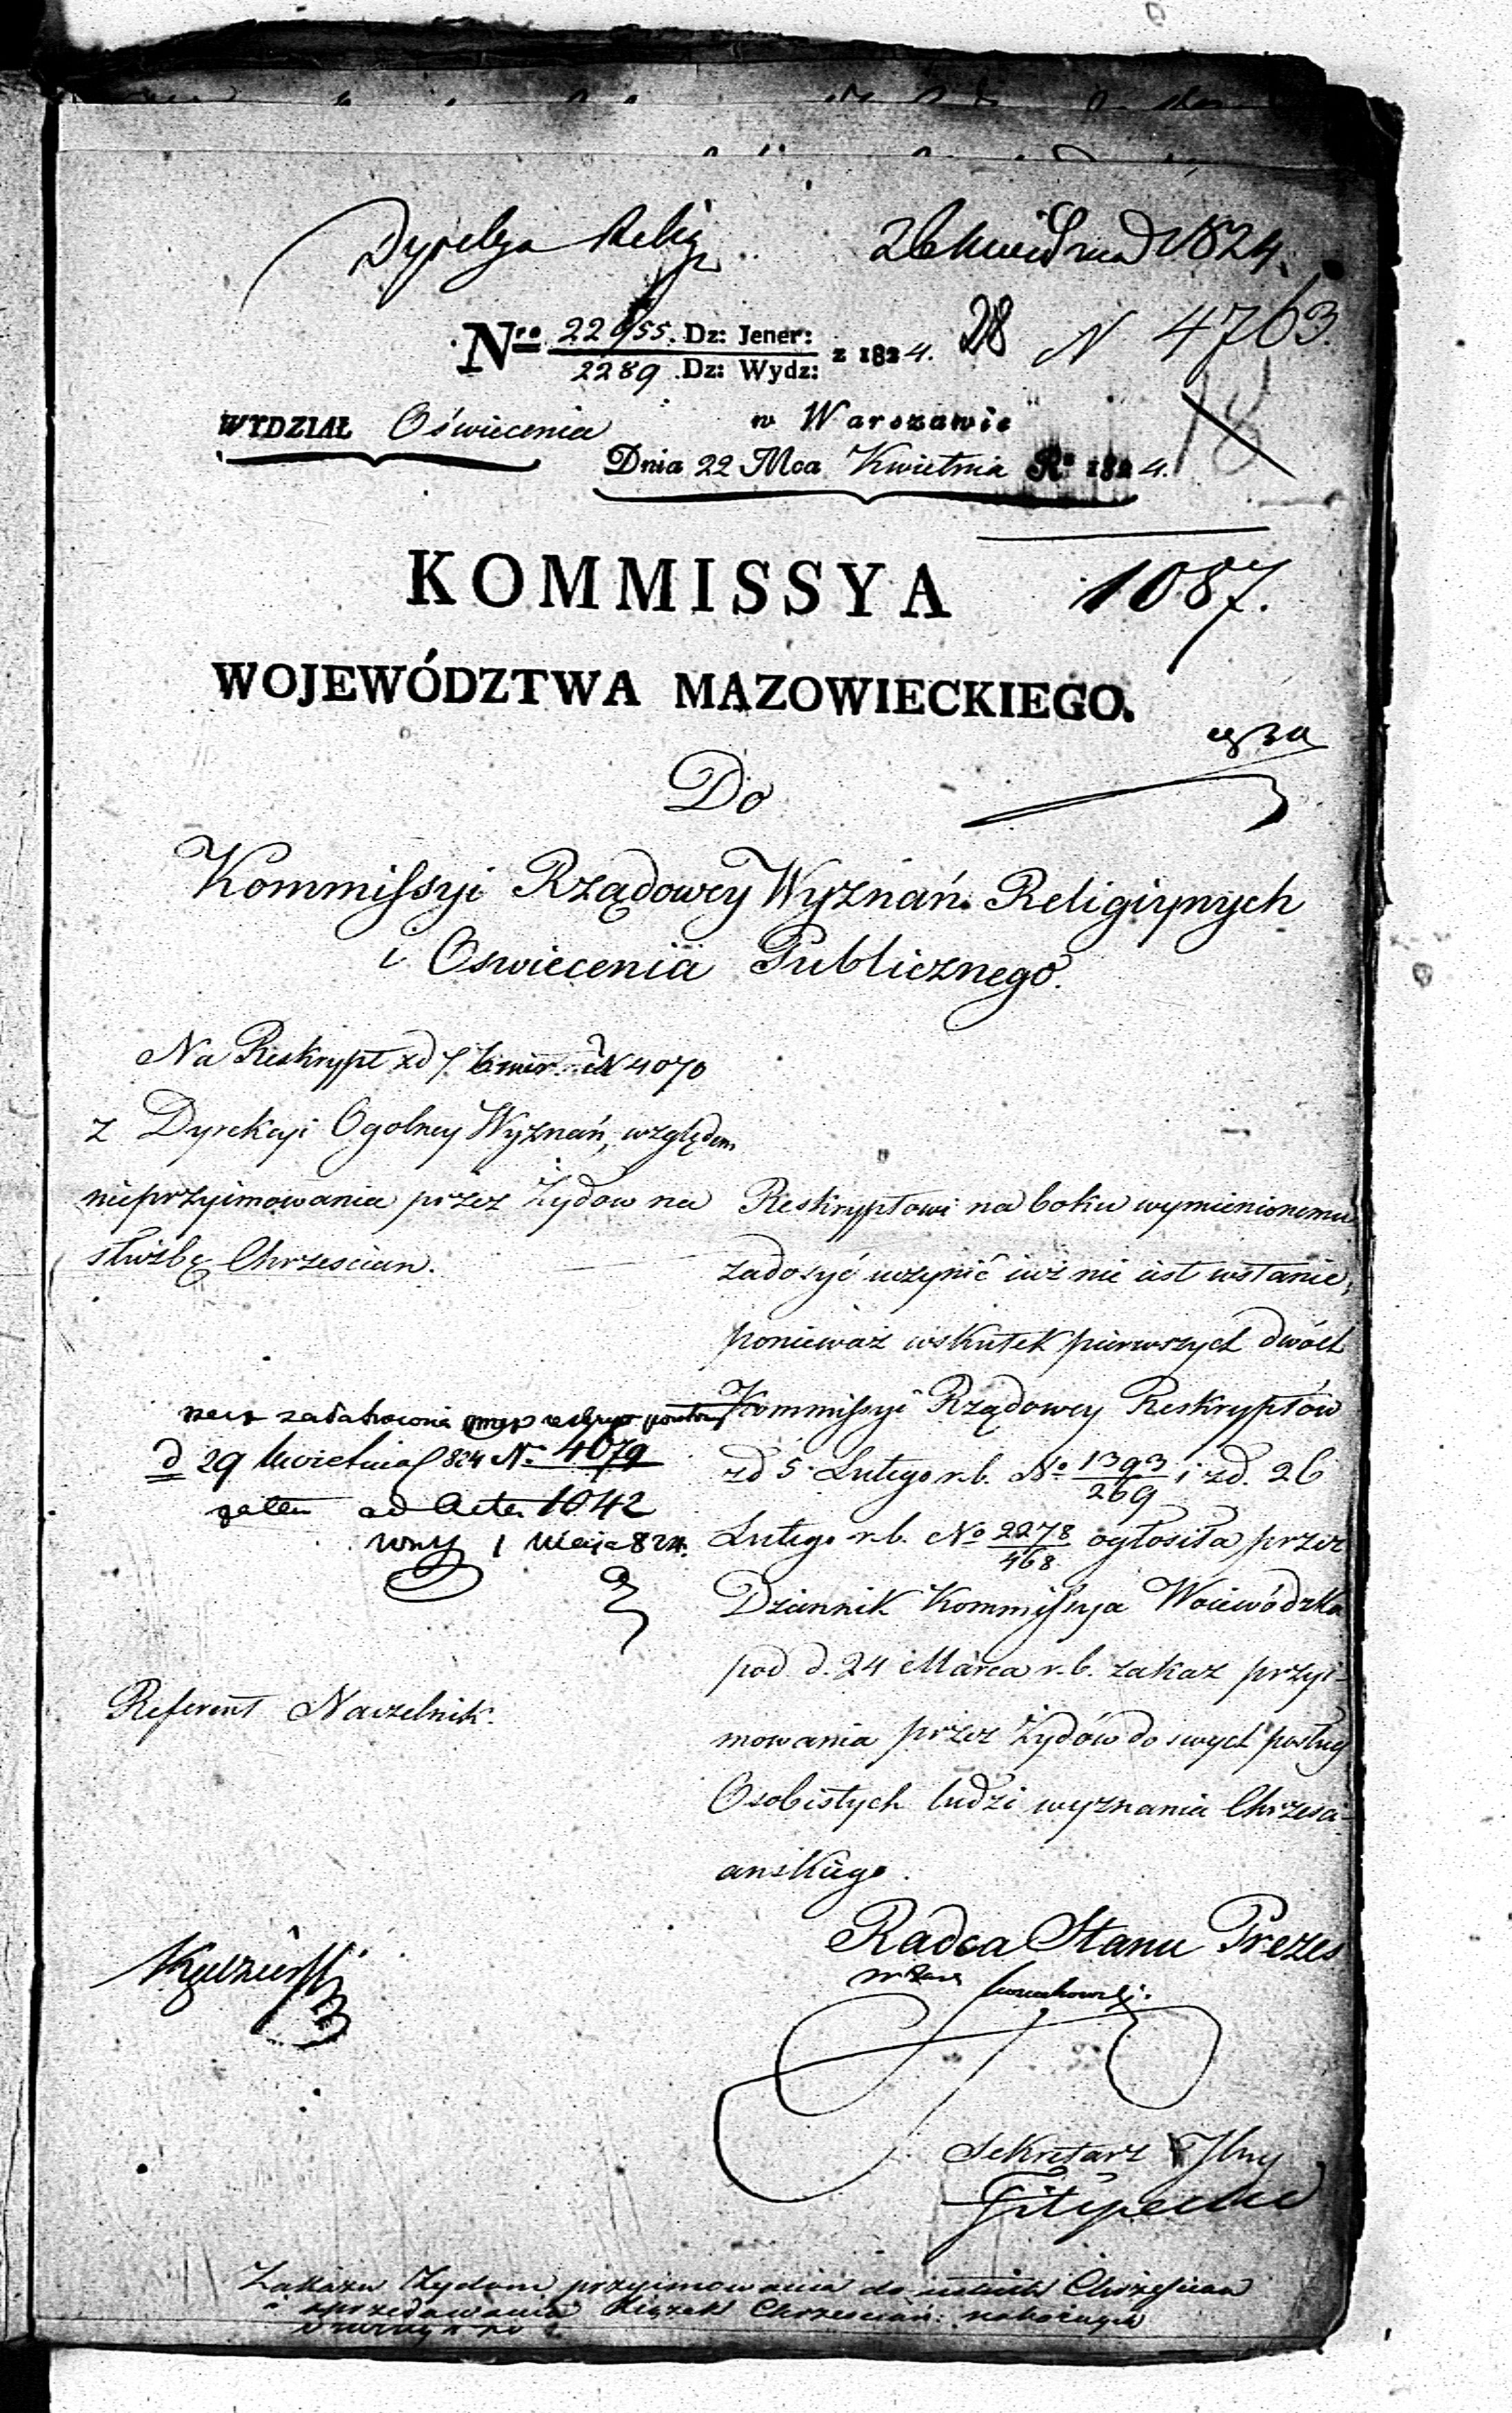 26 Kwietnia 1824.
Nro 22955. Dz: Jener: z 1824. 28 N 4763.
2289 Dz: Wydz:
18
WYDZIAŁ Oświecenia w Warszawie
Dnia 22 Mca Kwietnia Ru 1824.
KOMMISSYA 1087.
WOJEWÓDZTWA MAZOWIECKIEGO.
Do
Kommissyi Rządowey Wyznań Religiynych
i Oswiecenia Publicznego.
Na Reskrypt zd 7 N 4070
z Dyrekcyi Ogolney Wyznań, względem
nieprzyimowania przez Żydow na
służbę Chrzescian.
Reskryptowi na boku wymienionemu
zadosyć uczynić iuż nie iest wstanie,
ponieważ wskutek pierwszych dwóch
Kommissyi Rządowey Reskryptów
zd 5 Lutego r.b. No 1393/269 i zd. 26
Lutego r.b. No 2278/468 ogłosiła przez
Dziennik Kommissya Woiewódzka
pod d. 24 Marca r.b. zakaz przyi-
mowania przez Żydów do swych posług
Osobistych ludzi wyznania Chrzesci-
anskiego.
d 29 Kwietnia 824 No 4079
ad Acta 1042
1 Maja 824.
Referent Naczelnik.
Radca Stanu Prezes
Sekretarz Jlny
Filipecki
Zakazu Żydom przyimowania do usług Chrzescian
i sprzedawania Książek Chrzescian: nabożnych